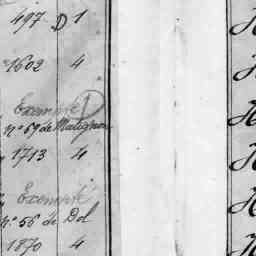 497 D 1
1602 4
Exempté
nº 69 de Matignon
1713 4
Exempté
nº 56 de Dol
1870 4